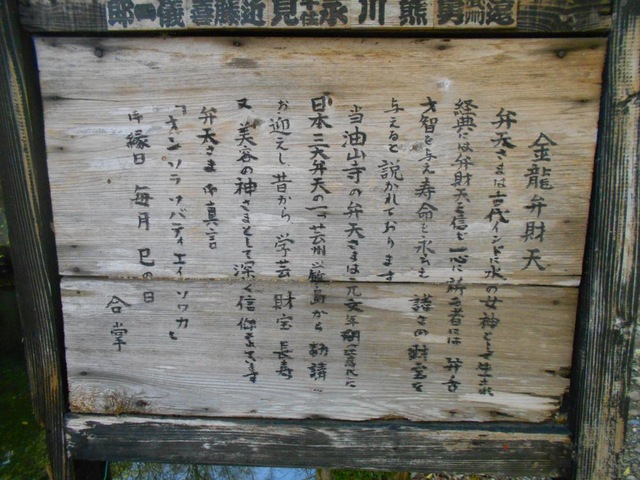 遠
熊川永見
近藤喜儀一郎
金龍弁財天
弁天さまは古代インドに水の女神として生まれ
経典には弁財天を信じ一心に祈る者には弁舌
才智を与え寿命を永らえ諸々の財宝を
与えると説かれております
当油山寺の弁天さまは元文年間
日本三大弁天の一つ芸州厳島から勧請
お迎えし昔から学芸財宝長寿
又美容の神さまとして深く信仰
弁天さま御真言
『オン ソラ ソバテイ エイ ソワカ』
御縁日 毎月 巳の日
合掌